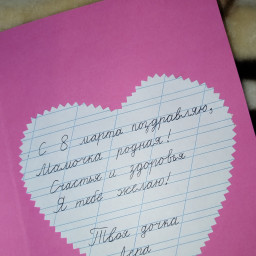 С 8 марта поздравляю,
Мамочка родная!
Счастья и здоровья
Я тебе желаю!
Твоя дочка
Лера